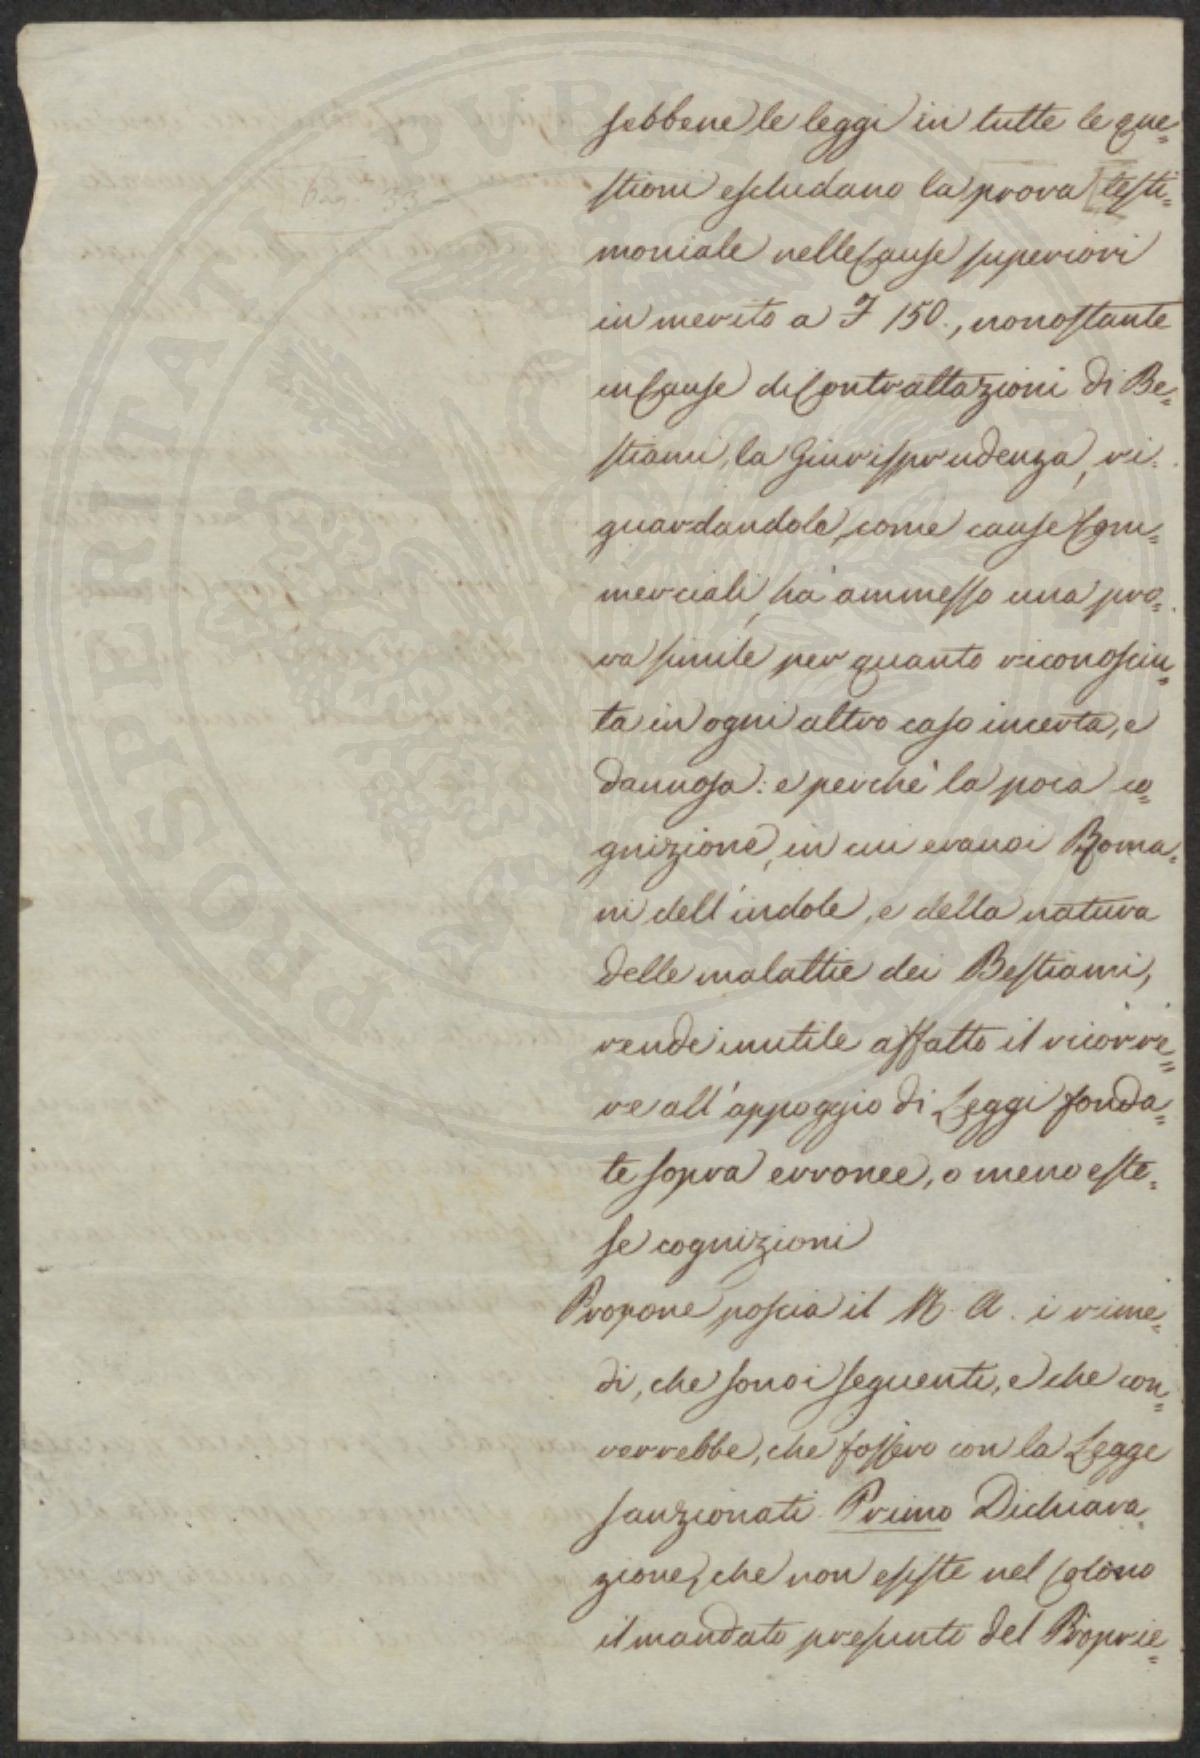 PROSPERITATI PVBLICAE
sebbene le leggi in tutte le que=
stioni escludano la prova testi=
moniale nelle Cause superiori
in merito a £ 150., nonostante
in Cause di Contrattazioni di Be=
stiami, la Giurisprudenza, ri=
guardandole, come cause Com=
merciali, ha ammesso una pro=
va simile per quanto riconosciu=
ta in ogni altro caso incerta, e
dannosa: e perchè la poca co=
gnizione, in cui erano i Roma=
ni dell'indole, e della natura
delle malattie dei Bestiami,
rende inutile affatto il ricorre=
re all'appoggio di Leggi fonda=
te sopra erronee, o meno este=
se cognizioni
Propone poscia il N. A. i rime=
di, che sono i seguenti, e che con=
verrebbe, che fossero con la Legge
sanzionati. Primo Dichiara
zione, che non esiste nel Colono
il mandato presunto del Proprie=